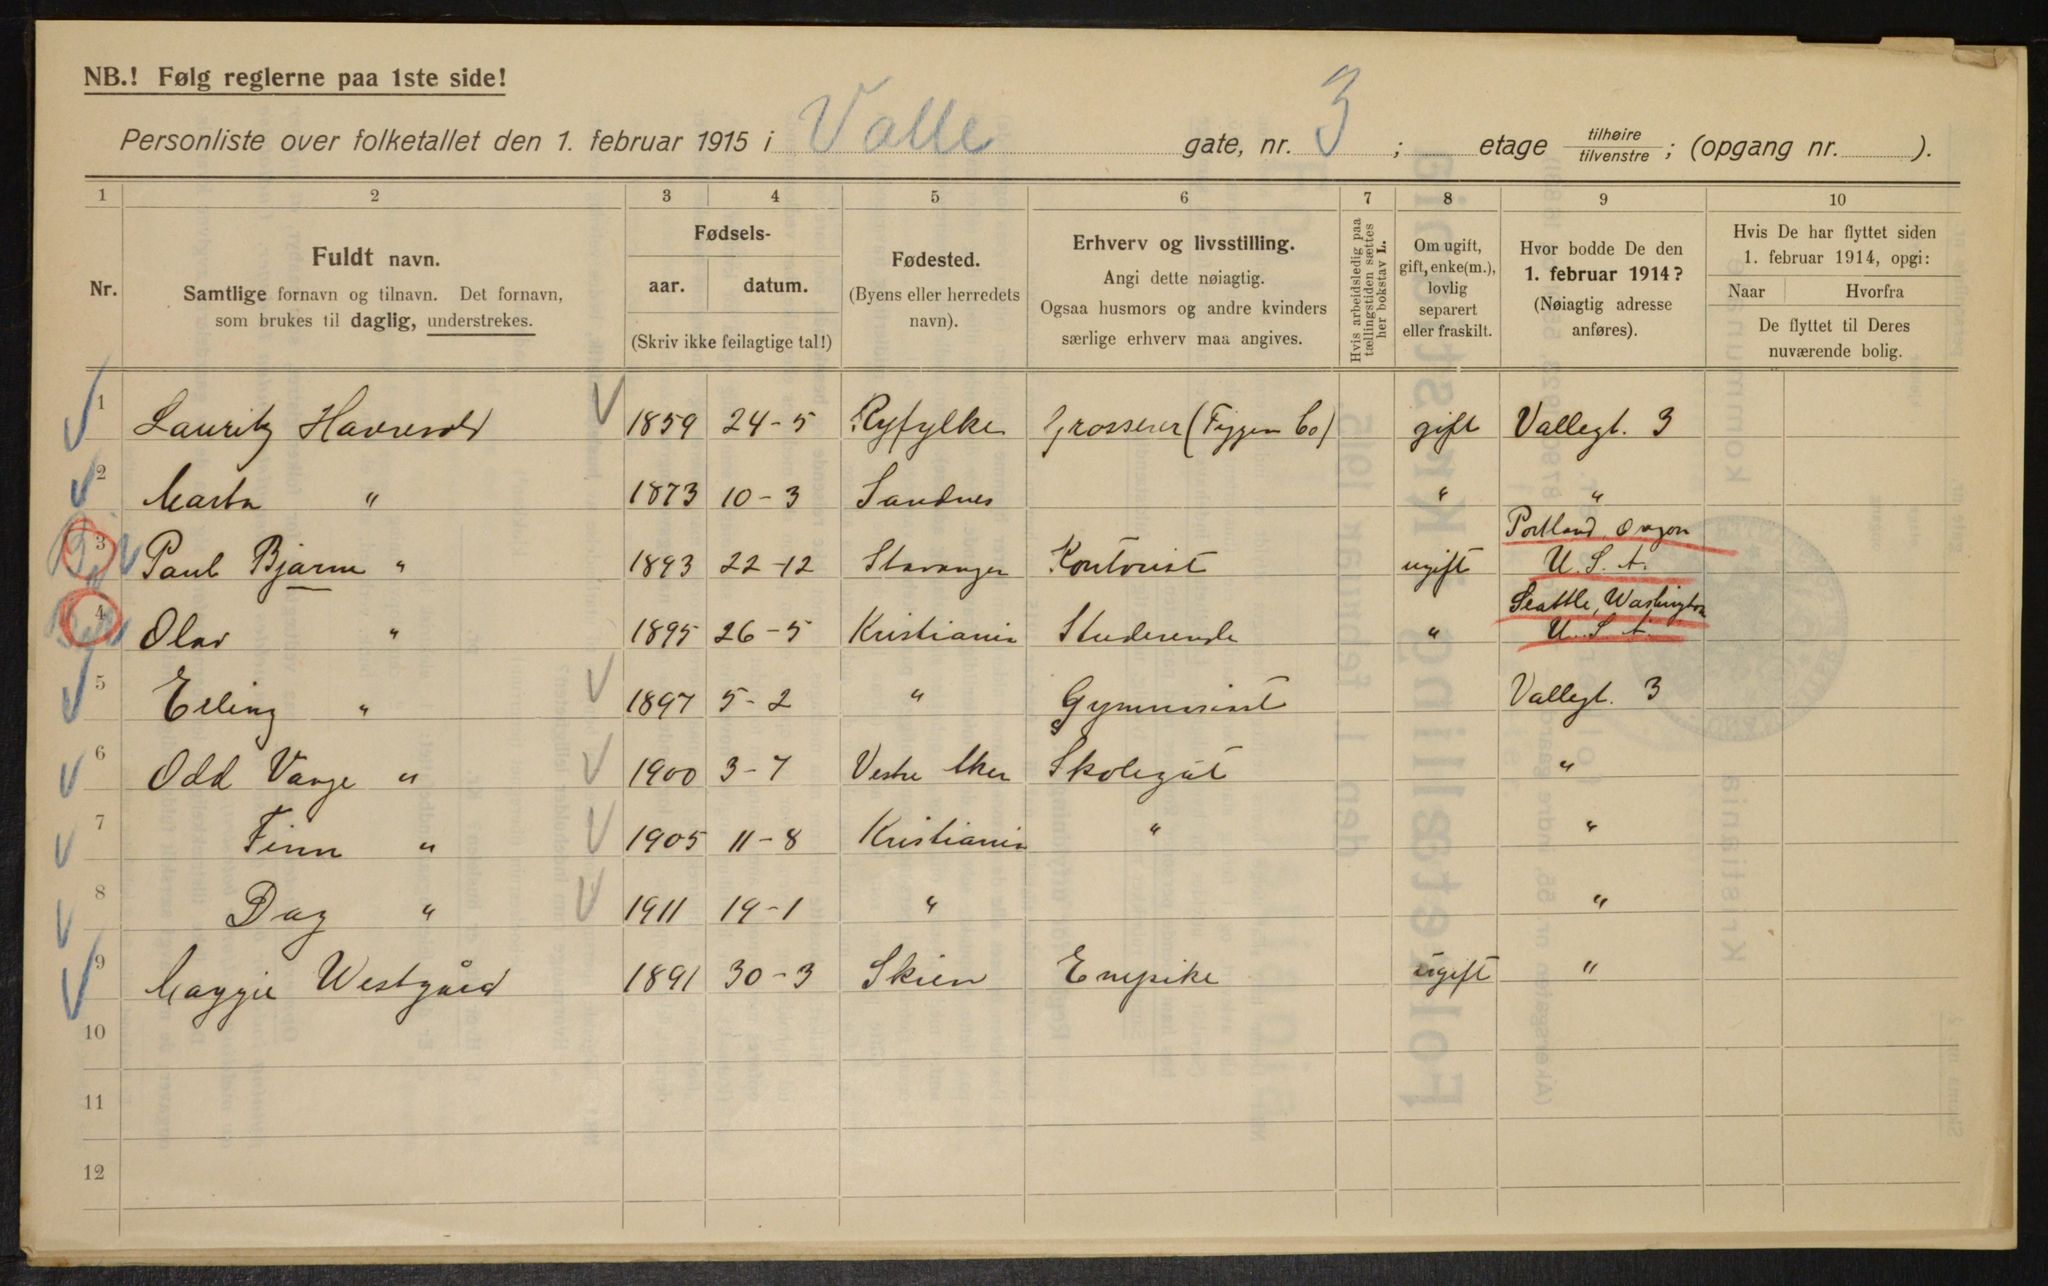 NB.! Følg reglerne paa 1ste side!
Personliste over folketallet den 1. februar 1915 i Valle gate, nr. 3 ; etage tilhøire / tilvenstre ; (opgang nr. ).
1 2 3 4 5 6 7 8 9 10
Nr.
Fuldt navn.
Samtlige fornavn og tilnavn. Det fornavn,
som brukes til daglig, understrekes.
Fødsels-
aar. datum.
(Skriv ikke feilagtige tal!)
Fødested.
(Byens eller herredets
navn).
Erhverv og livsstilling.
Angi dette nøiagtig.
Ogsaa husmors og andre kvinders
særlige erhverv maa angives.
Hvis arbeidsledig paa
tællingstiden sættes
her bokstav L.
Om ugift,
gift, enke(m.),
lovlig
separert
eller fraskilt.
Hvor bodde De den
1. februar 1914?
(Nøiagtig adresse
anføres).
Hvis De har flyttet siden
1. februar 1914, opgi:
Naar Hvorfra
De flyttet til Deres
nuværende bolig.
1 Lauritz Havrevold 1859 24-5 Ryfylke Grosserer (Figgen Co) gift Vallegt. 3
2 Marta " 1873 10-3 Sandnes " "
3 Paul Bjarne " 1893 22-12 Stavanger Kontorist ugift Portland, Oregon
U. S. A.
4 Olav " 1895 26-5 Kristiania Studerende " Seattle, Washington
U. S. A.
5 Erling " 1897 5-2 " Gymnasiast Vallegt. 3
6 Odd Vange " 1900 3-7 Vestre Aker Skolegut "
7 Finn " 1905 11-8 Kristiania " "
8 Dag " 1911 19-1 " "
9 Maggie Westgård 1891 30-3 Skien Enepike ugift "
10
11
12